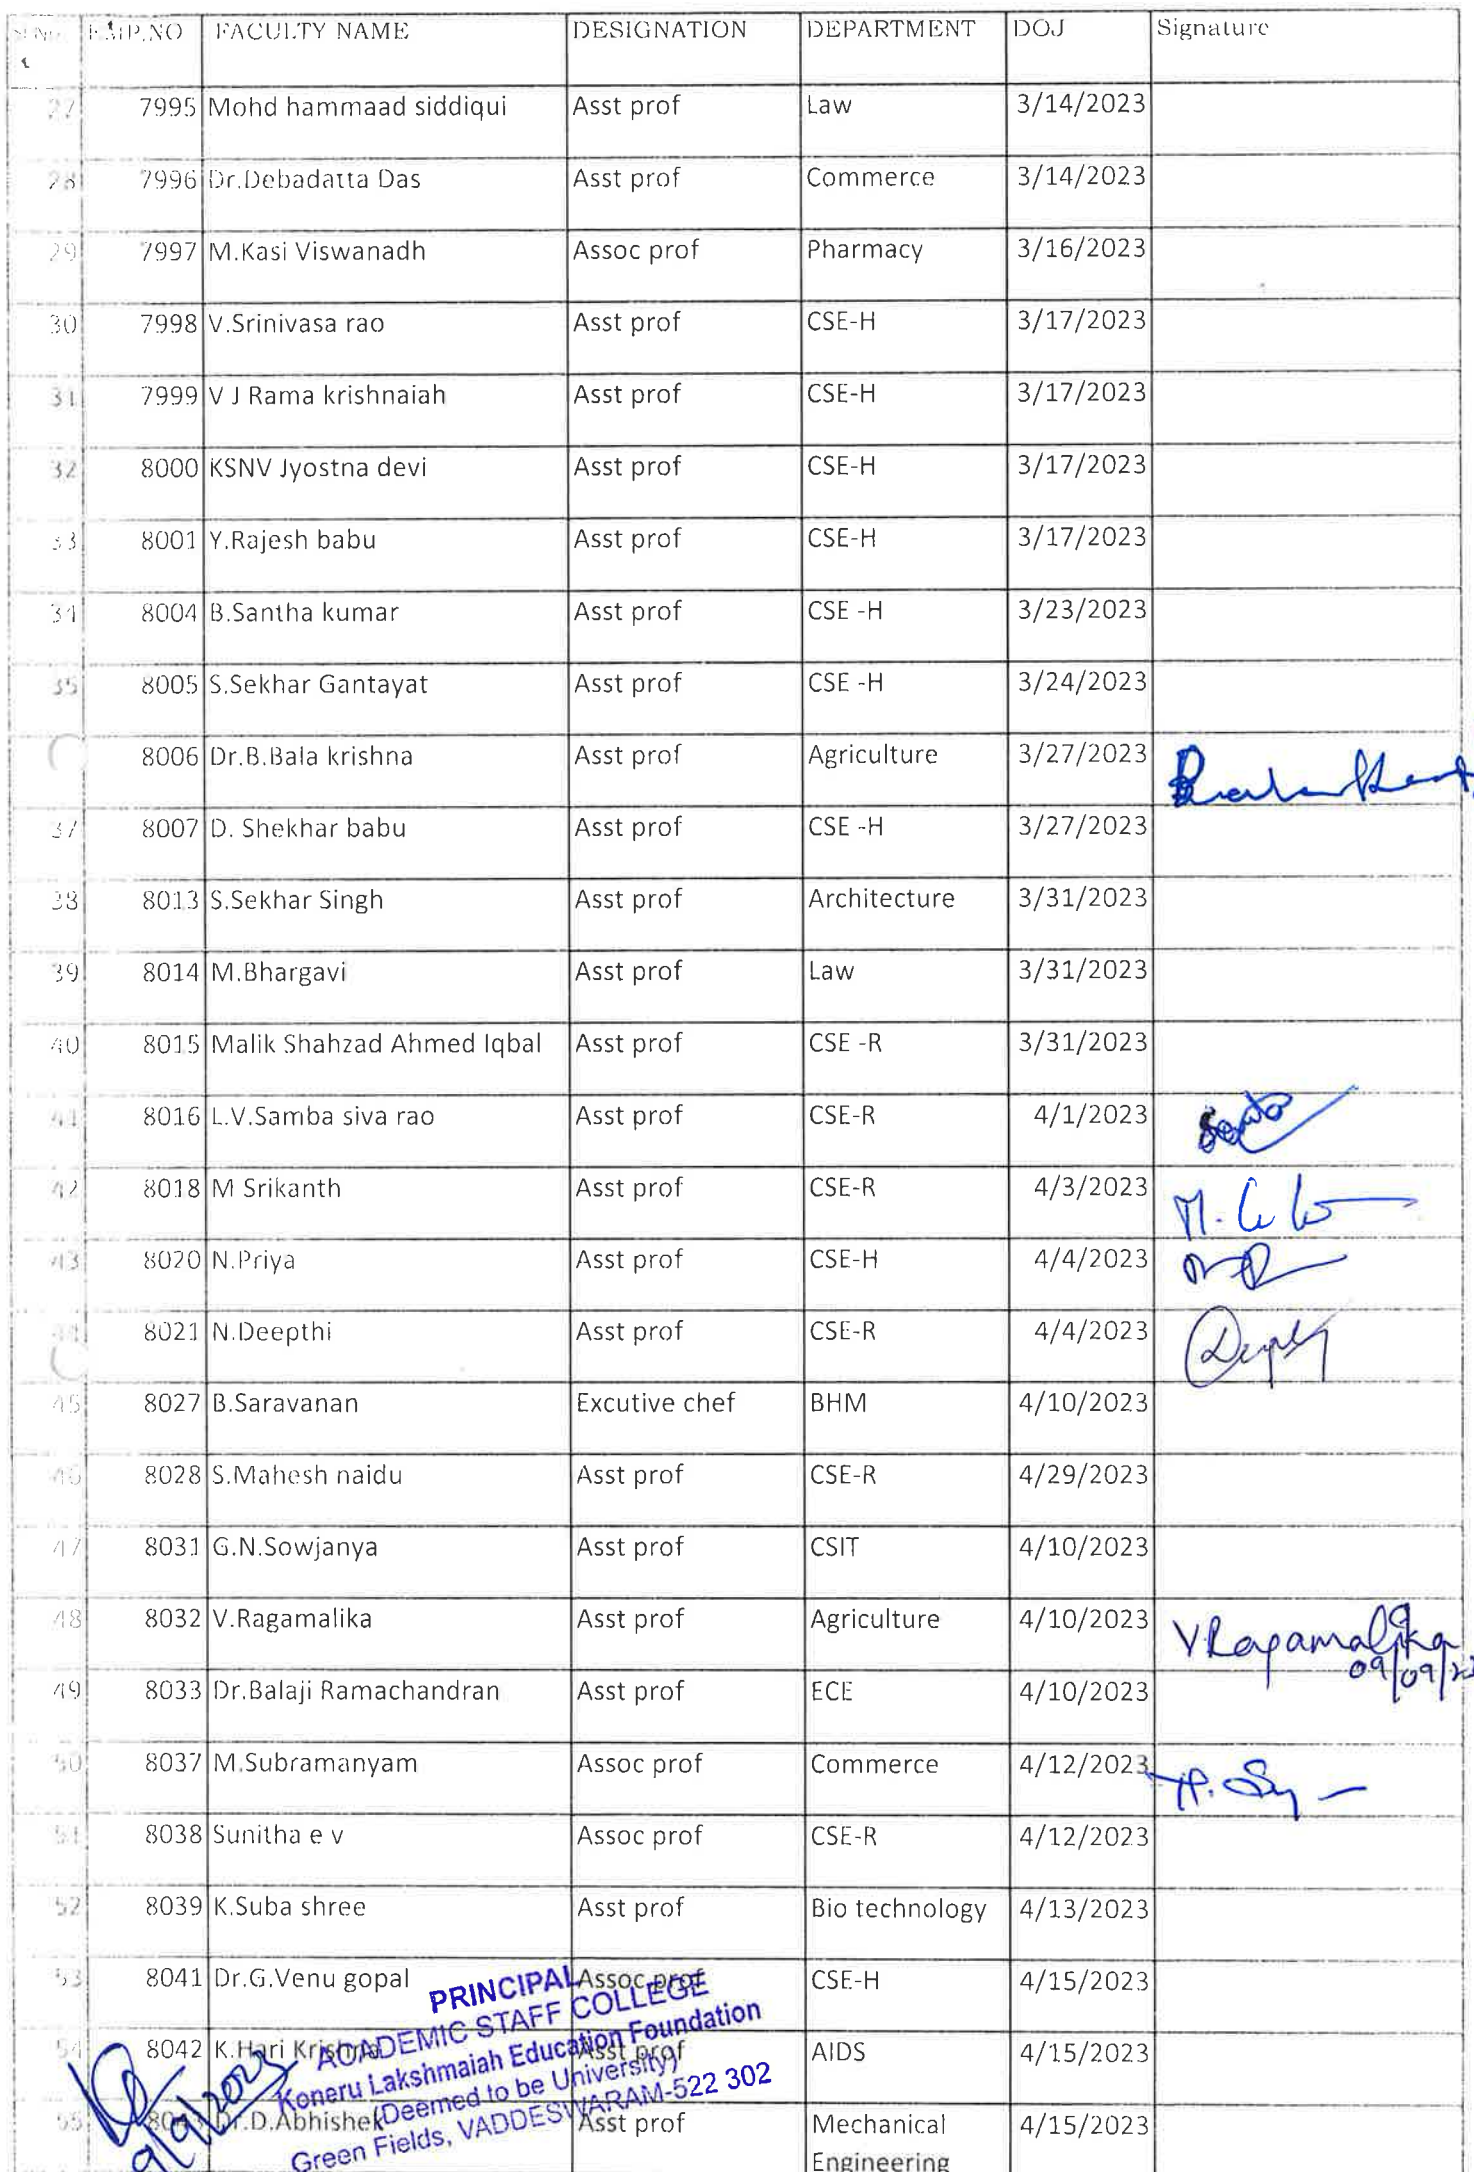 Sl No. EMP.NO FACULTY NAME DESIGNATION DEPARTMENT DOJ Signature
27 7995 Mohd hammaad siddiqui Asst prof Law 3/14/2023
28 7996 Dr.Debadatta Das Asst prof Commerce 3/14/2023
29 7997 M.Kasi Viswanadh Assoc prof Pharmacy 3/16/2023
30 7998 V.Srinivasa rao Asst prof CSE-H 3/17/2023
31 7999 V J Rama krishnaiah Asst prof CSE-H 3/17/2023
32 8000 KSNV Jyostna devi Asst prof CSE-H 3/17/2023
33 8001 Y.Rajesh babu Asst prof CSE-H 3/17/2023
34 8004 B.Santha kumar Asst prof CSE -H 3/23/2023
35 8005 S.Sekhar Gantayat Asst prof CSE -H 3/24/2023
8006 Dr.B.Bala krishna Asst prof Agriculture 3/27/2023
37 8007 D. Shekhar babu Asst prof CSE -H 3/27/2023
38 8013 S.Sekhar Singh Asst prof Architecture 3/31/2023
39 8014 M.Bhargavi Asst prof Law 3/31/2023
40 8015 Malik Shahzad Ahmed Iqbal Asst prof CSE -R 3/31/2023
41 8016 L.V.Samba siva rao Asst prof CSE-R 4/1/2023
42 8018 M Srikanth Asst prof CSE-R 4/3/2023
43 8020 N.Priya Asst prof CSE-H 4/4/2023
44 8021 N.Deepthi Asst prof CSE-R 4/4/2023
45 8027 B.Saravanan Excutive chef BHM 4/10/2023
46 8028 S.Mahesh naidu Asst prof CSE-R 4/29/2023
47 8031 G.N.Sowjanya Asst prof CSIT 4/10/2023
48 8032 V.Ragamalika Asst prof Agriculture 4/10/2023 V Ragamalika
09/09/23
49 8033 Dr.Balaji Ramachandran Asst prof ECE 4/10/2023
50 8037 M.Subramanyam Assoc prof Commerce 4/12/2023
51 8038 Sunitha e v Assoc prof CSE-R 4/12/2023
52 8039 K.Suba shree Asst prof Bio technology 4/13/2023
53 8041 Dr.G.Venu gopal Assoc prof CSE-H 4/15/2023
54 8042 K.Hari Krishna Asst prof AIDS 4/15/2023
55 8043 Dr.D.Abhishek Asst prof Mechanical 4/15/2023
Engineering
PRINCIPAL
ACADEMIC STAFF COLLEGE
Koneru Lakshmaiah Education Foundation
(Deemed to be University)
Green Fields, VADDESWARAM-522 302
9/9/2023